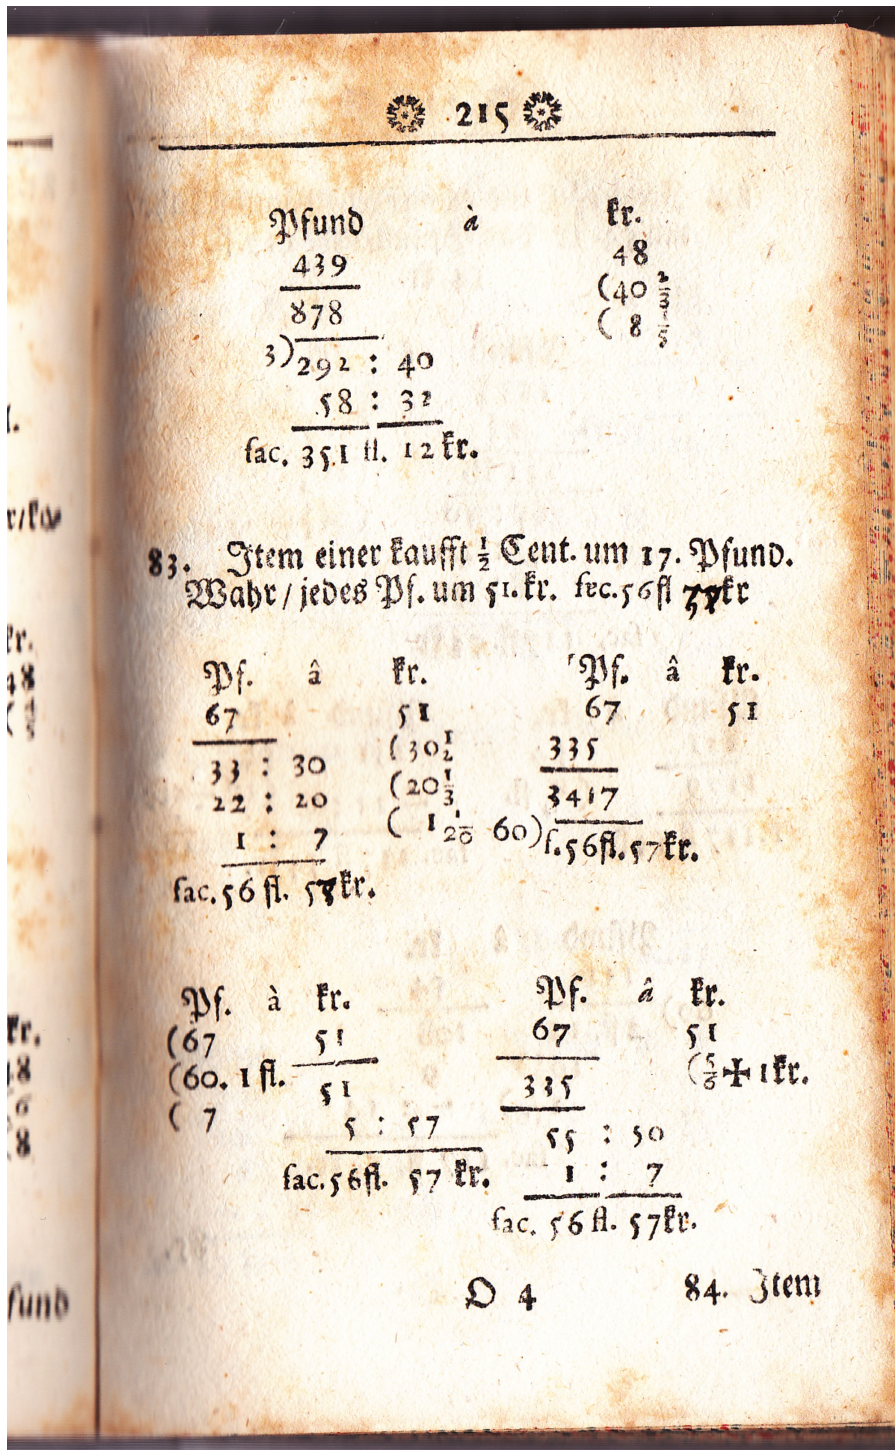 215
Pfund à kr.
439 48
878 (40 2/3
3)292 : 40 ( 8 1/5
58 : 32
fac. 351 fl. 12 kr.
83. Item einer kaufft ½ Cent. um 17. Pfund.
Wahr / jedes Pf. um 51. kr. fac. 56 fl kr
Pf. â kr.
67 51
33 : 30 (30 1/2
22 : 20 (20 1/3
1 : 7 ( 1 1/20
fac. 56 fl. 57 kr.
Pf. â kr.
67 51
335
3417
60) f. 56 fl. 57 kr.
Pf. à kr.
(67 51
(60. 1 fl. 51
( 7 5 : 57
fac. 56 fl. 57 kr.
Pf. â kr.
67 51
335 (5/6 + 1 kr.
55 : 50
1 : 7
fac. 56 fl. 57 kr.
O 4 84. Item